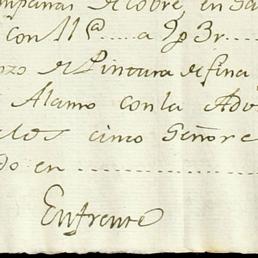 mpanas de cobre, en Sa
con 11@..... a 9p 3r.....
nzo de Pintura de fina
Alamo con la Adv
los cinco Señore
do en ..................
Enfrente